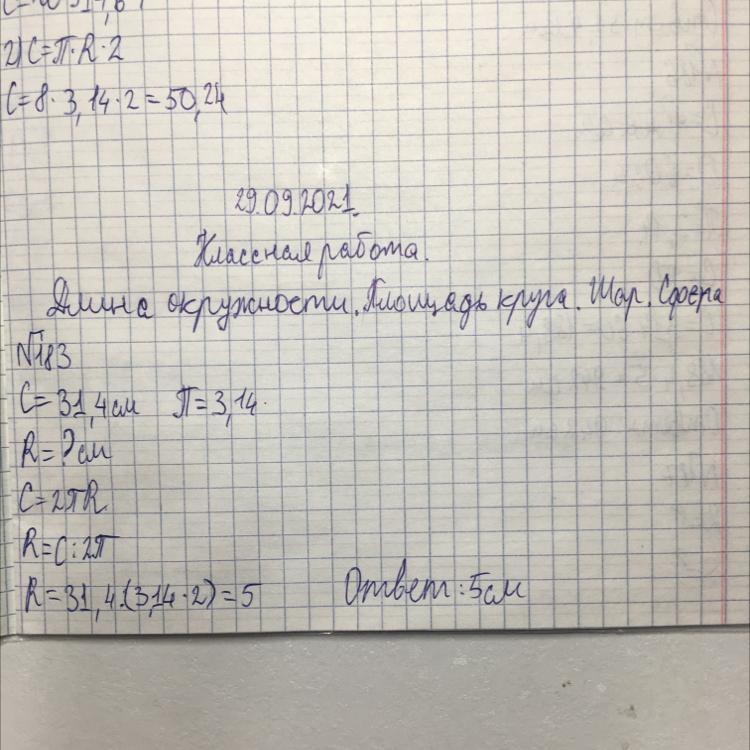 2) C=π·R·2
C=8·3,14·2=50,24
29.09.2021.
Классная работа.
Длина окружности. Площадь круга. Шар. Сфера
№183
C=31,4см π=3,14.
R=?см
C=2πR
R=C:2π
R=31,4:(3,14·2)=5 Ответ:5см